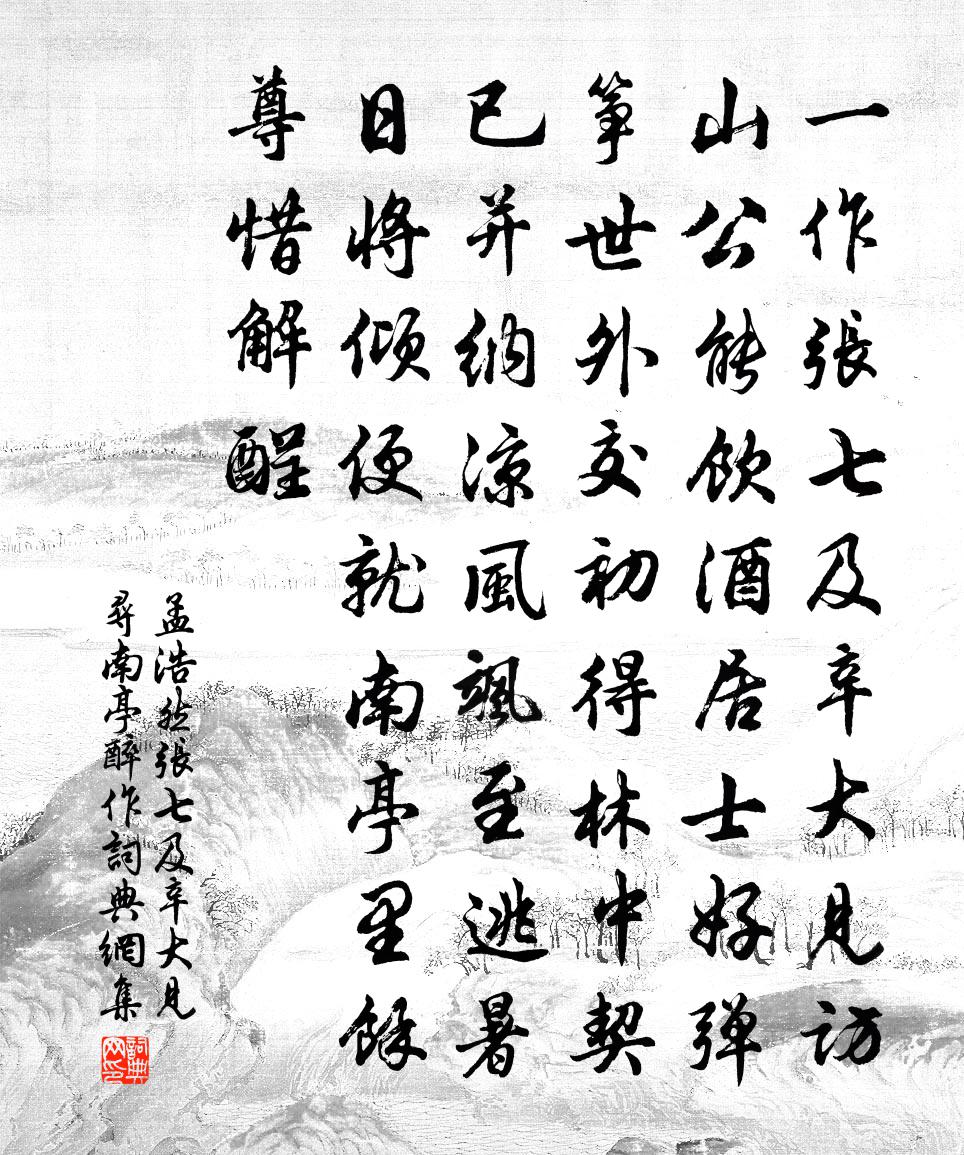 一作張七及辛大見訪
山公能飲酒居士好弹
筝世外交初得林中契
已并納凉風颯至逃暑
日將倾便就南亭里餘
尊惜解酲
孟浩然張七及辛大見
尋南亭醉作詞典網集
詞典网印